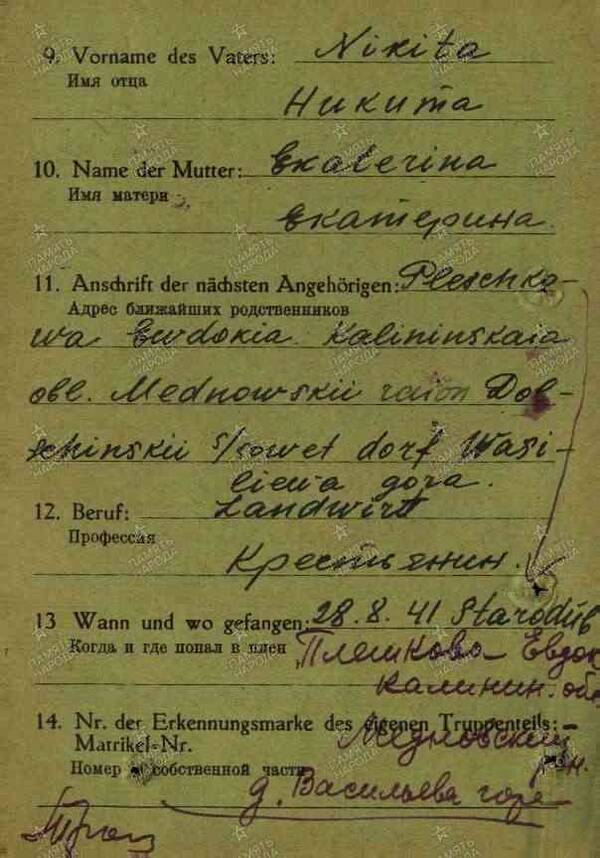 9. Vorname des Vaters: Nikita
Имя отца
Никита
10. Name der Mutter: Ekaterina
Имя матери
Екатерина.
11. Anschrift der nächsten Angehörigen: Pleschko-
Адрес ближайших родственников
wa Ewdokia. Kalininskaia
obl. Mednowskii raion Dob-
schinskii s/sowet dorf Wasi-
liewa gora.
12. Beruf: Landwirt
Профессия
Крестьянин.
13 Wann und wo gefangen: 28.8.41 Starodub
Когда и где попал в плен
Плешкова Евдок
Калинин. обл
14. Nr. der Erkennungsmarke des eigenen Truppenteils: -
Matrikel-Nr.
Медновский
Номер собственной части
р-н.
д. Васильева гора